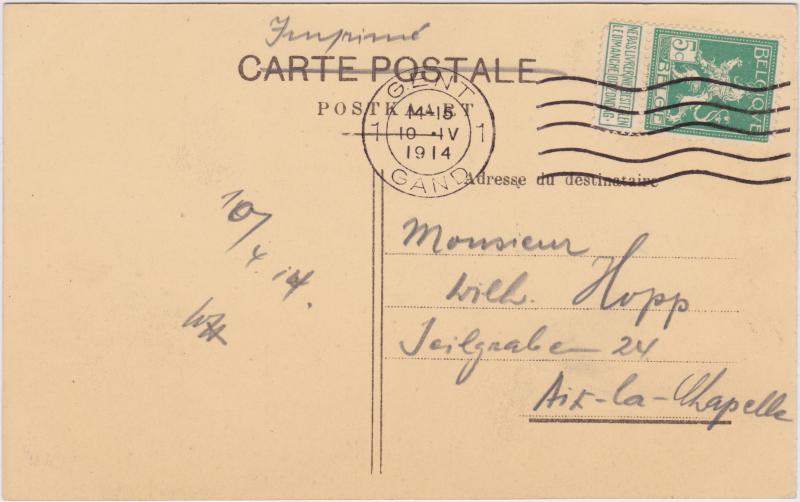 Imprimé
CARTE POSTALE
POSTKAART
GENT
14-15
1 10 IV 1
1914
GAND
BELGIQUE
5c
BELGIË
NE PAS LIVRER LE DIMANCHE
NIET BESTELLEN OP ZONDAG.
Adresse du destinataire
10/4.14.
Monsieur
Wilh. Hopp
Seilgraben 24
Aix-la-Chapelle